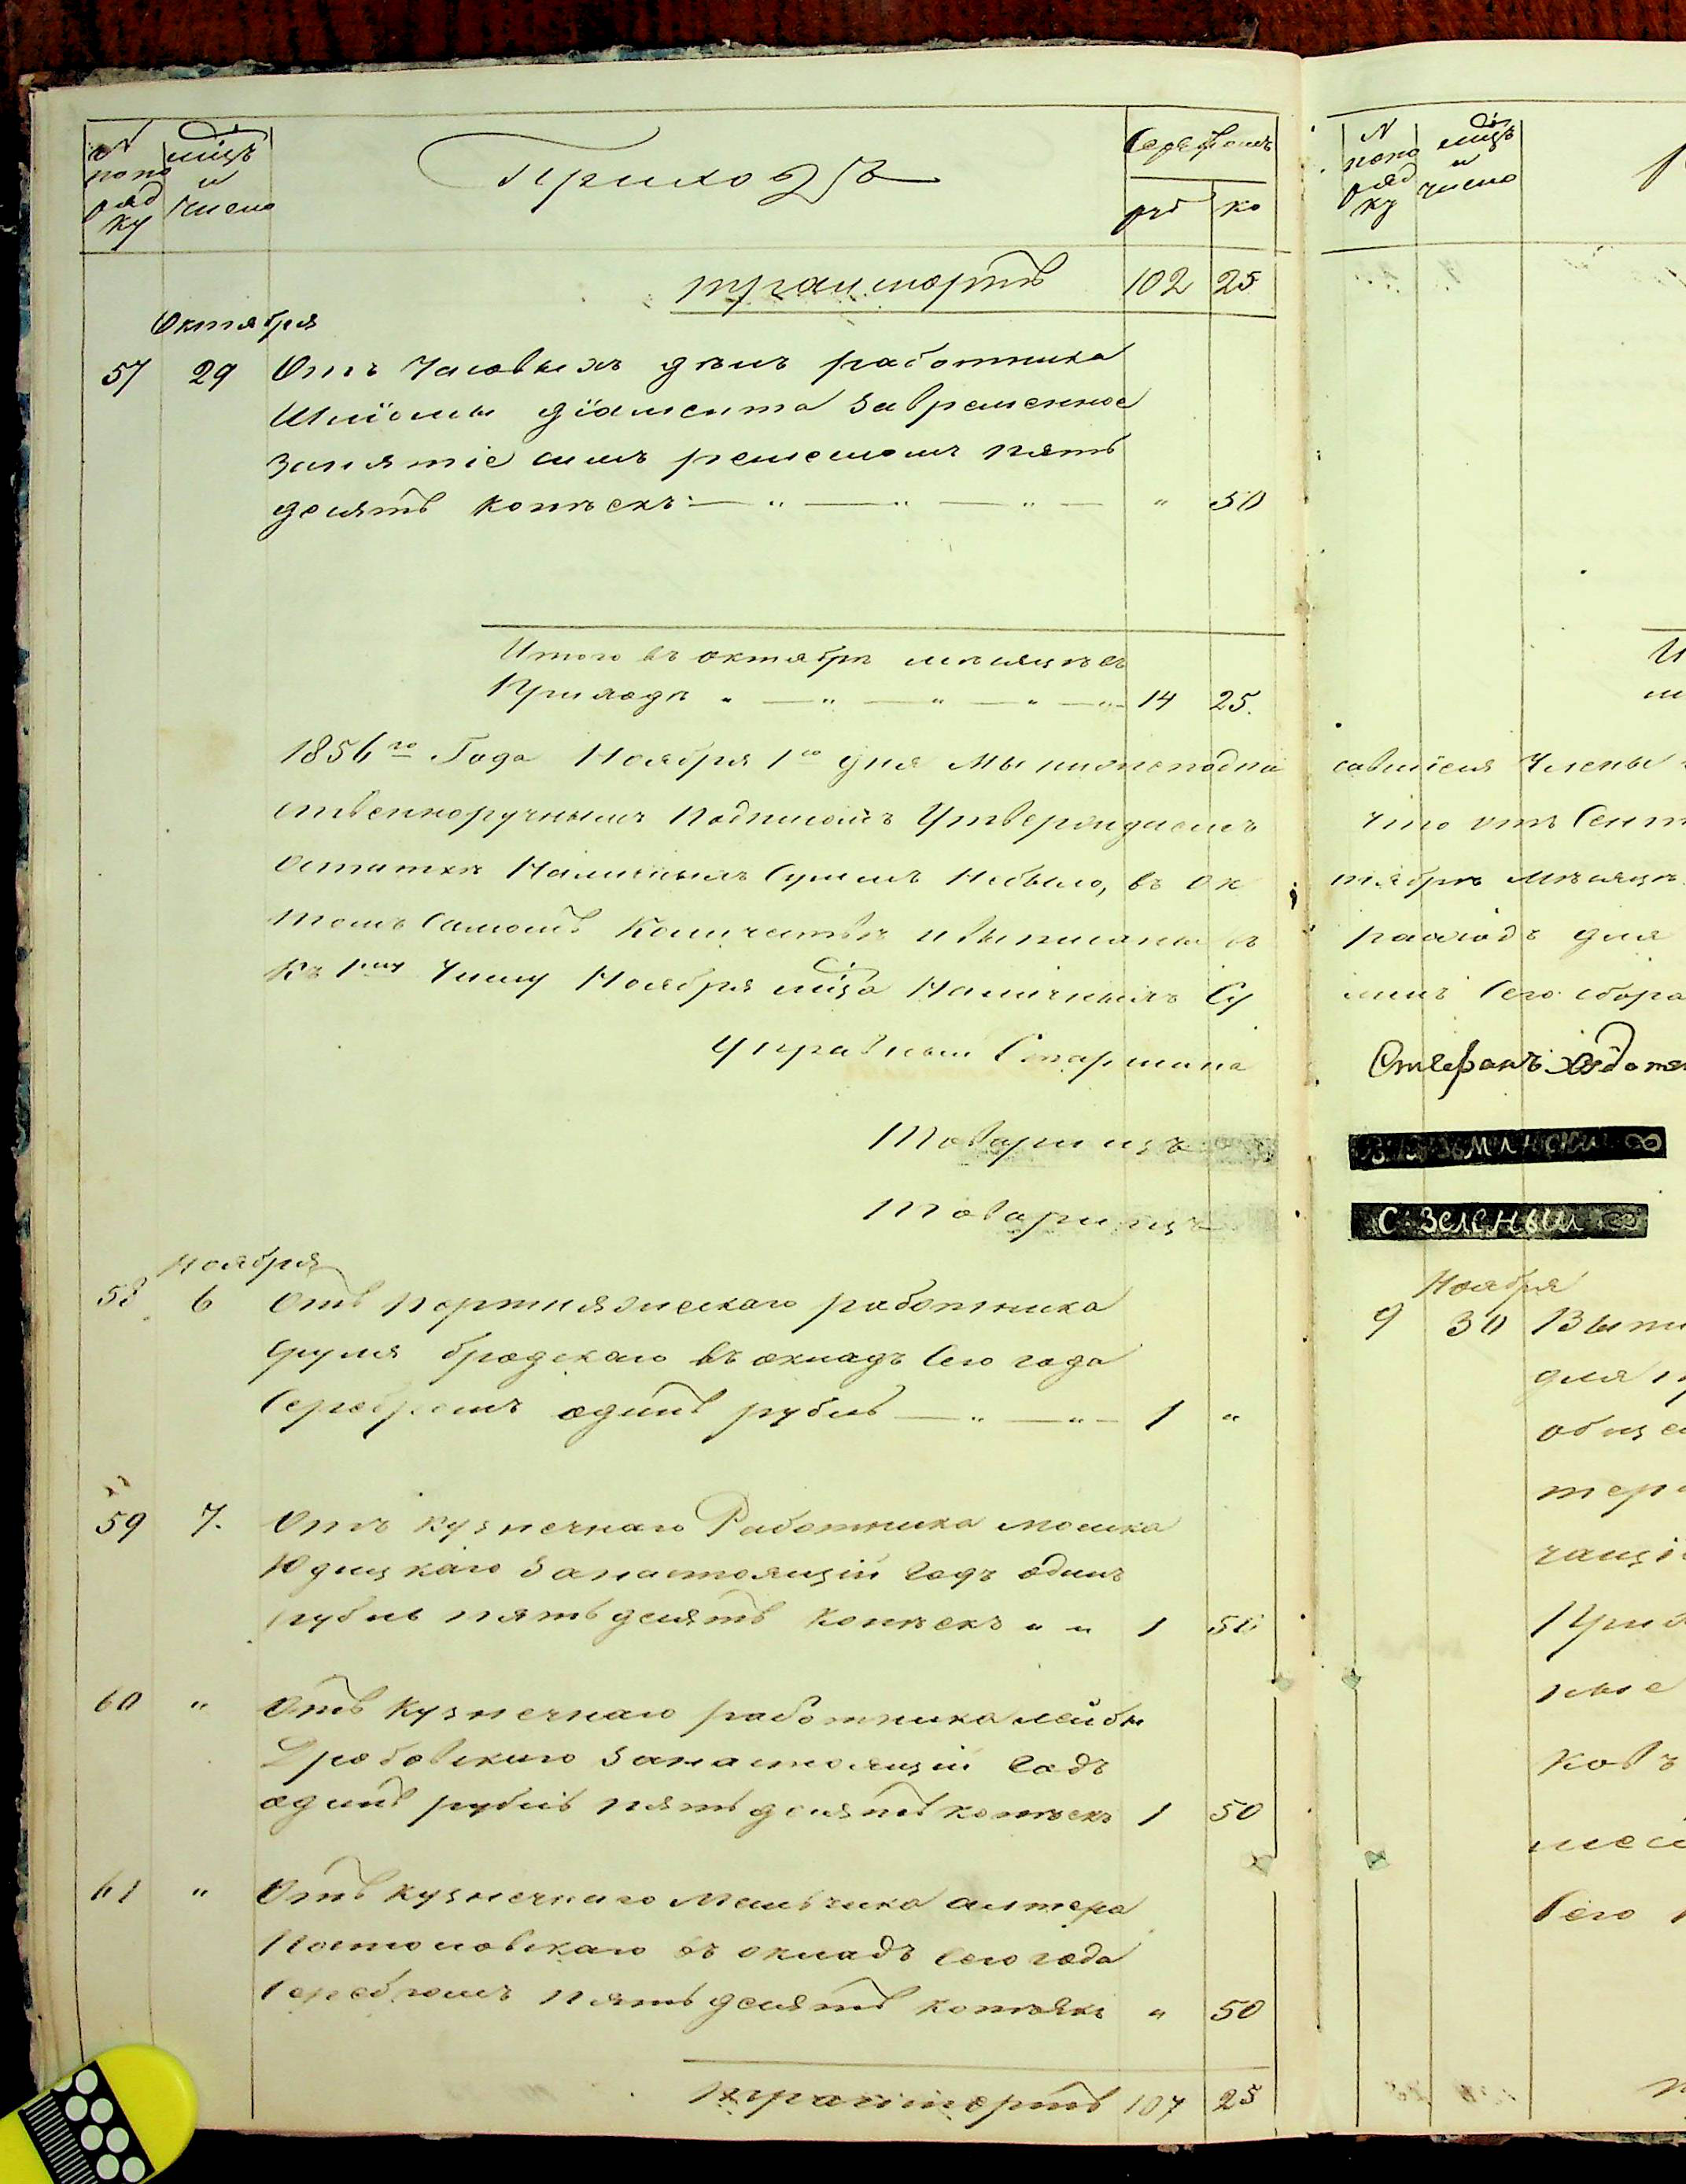 N
по по
ряд
ку
мцъ
и
число
Приходъ
Серебромъ
руб ко
транспортъ 102 25
Октября
57 29 Отъ Часовыхъ дѣлъ работника
Шліомы діамента Завременное
Занятіе симъ ремесломъ пять
десятъ копѣекъ " 50
Итого въ октябрѣ мѣсяцѣ въ
Приходѣ 14 25.
1856го Года Ноября 1го дня Мы нижеподпи
ственноручнымъ Подписомъ Утверждаемъ
Остаткѣ Наличныхъ Суммъ Небыло, въ Ок
томъ Самомъ Количествѣ и выписаны въ
Къ 1му Числу Ноября мца Наличныхъ Су
Управный Старшина
Товарищъ
Товарищъ
Ноября
58 6 Отъ портняжескаго работника
Фруля бродскаго въ окладъ Сего года
Серебромъ одинъ рубль 1 "
59 7. Отъ кузнечнаго Работника мошка
Юдицкаго Занастоящій годъ одинъ
рубль пятьдесятъ Копѣекъ " " 1 50
60 " Отъ кузнечнаго работника лейбы
Дробовскаго Занастоящій Годъ
одинъ рубль пятьдесятъ копѣекъ 1 50
61 " Отъ кузнечнаго Мальчика алтера
въ окладъ Сего года
Серебромъ пятьдесятъ копѣекъ " 50
транспортъ 107 25
N
по по
ряд
ку
мцъ
и
число
И
савшіеся Члены
что отъ Сент
тябрѣ Мѣсяцѣ
расходъ для
ммъ Сего сбора
Стефанъ
С. Зеленый
Ноября
9 30 Выпи
для п
общес
тер
чащі
При
ные
ковъ
мес
Сего